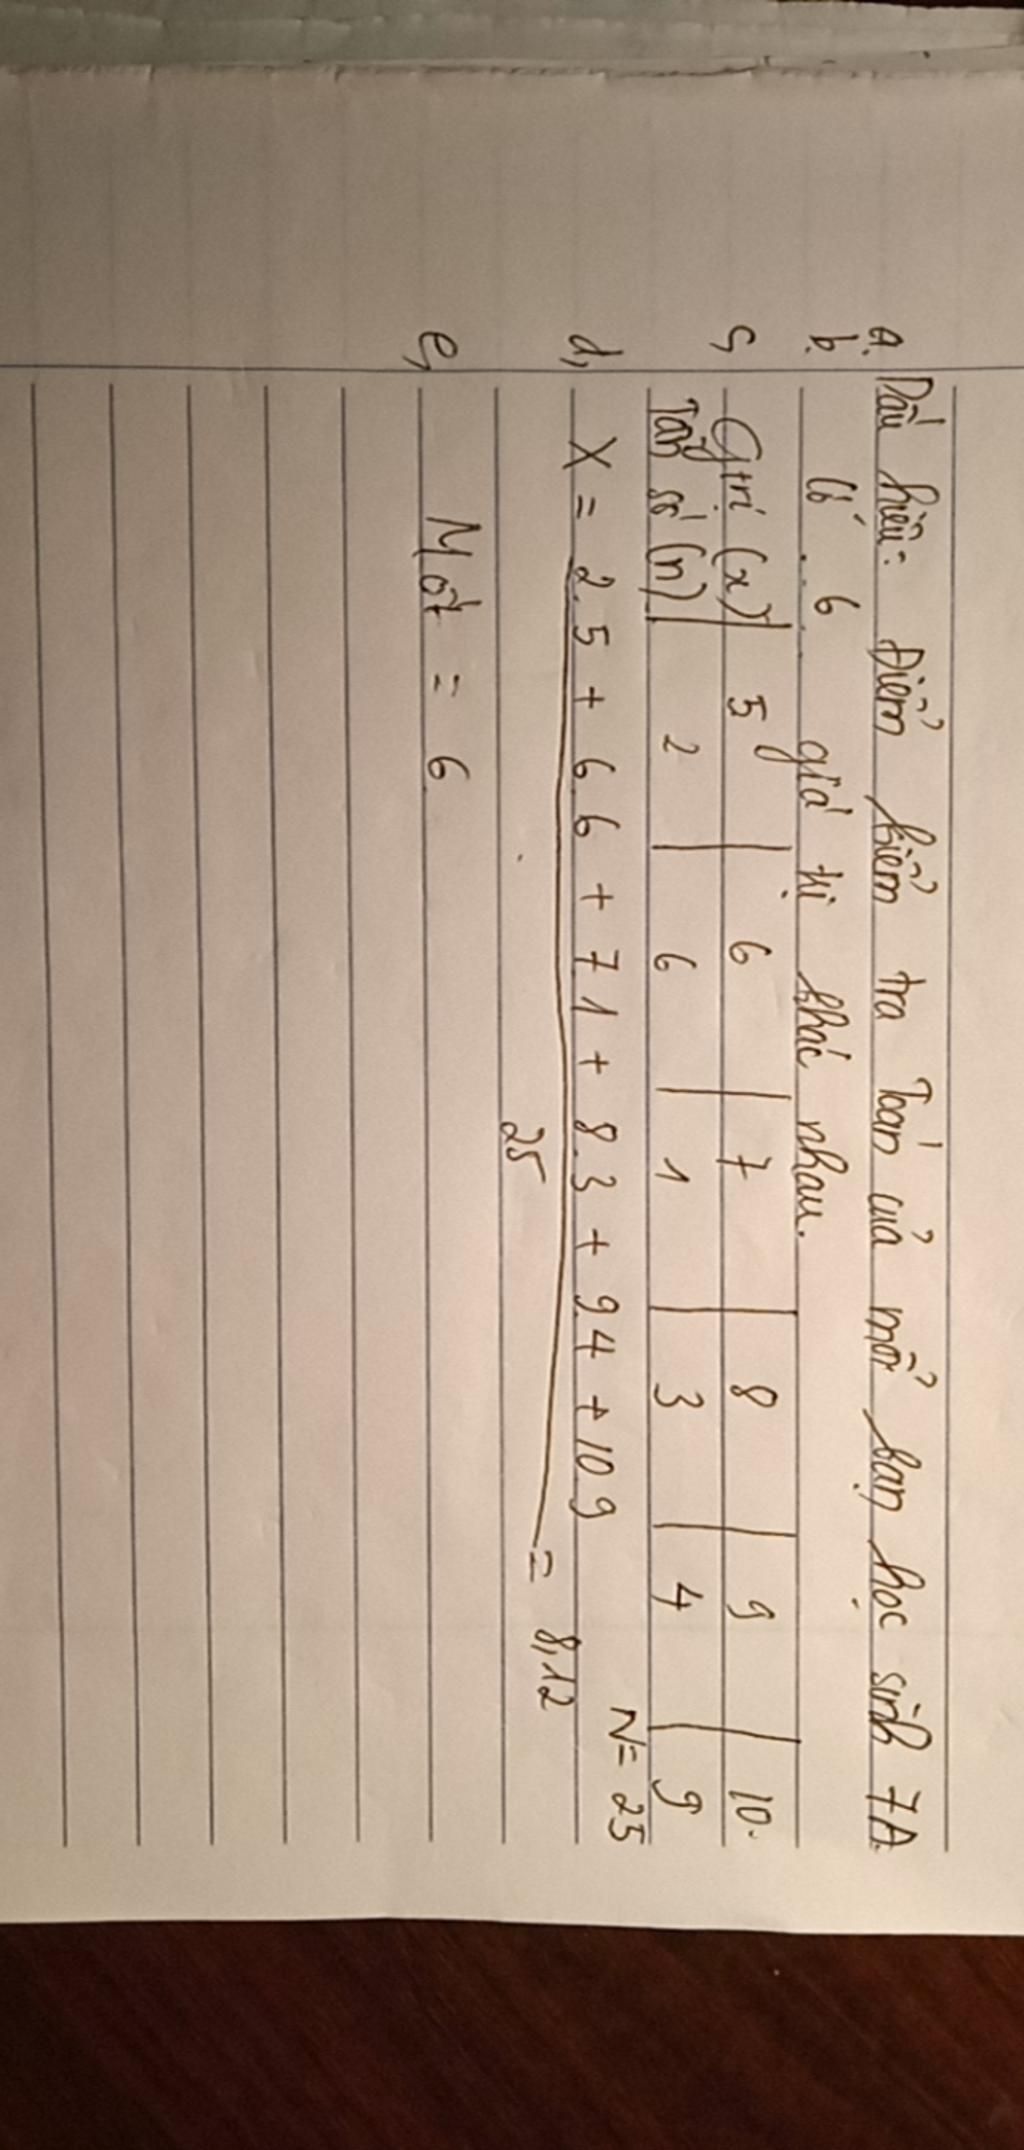 a. Dấu hiệu: Điểm kiểm tra Toán của mỗi bạn học sinh 7A
b. Có 6 giá trị khác nhau.
c, Gtrị (x) | 5 | 6 | 7 | 8 | 9 | 10.
Tần số (n) | 2 | 6 | 1 | 3 | 4 | 9
N = 25
d, X = 2.5 + 6.6 + 7.1 + 8.3 + 9.4 + 10.9 = 8,12
25
e, Mốt = 6